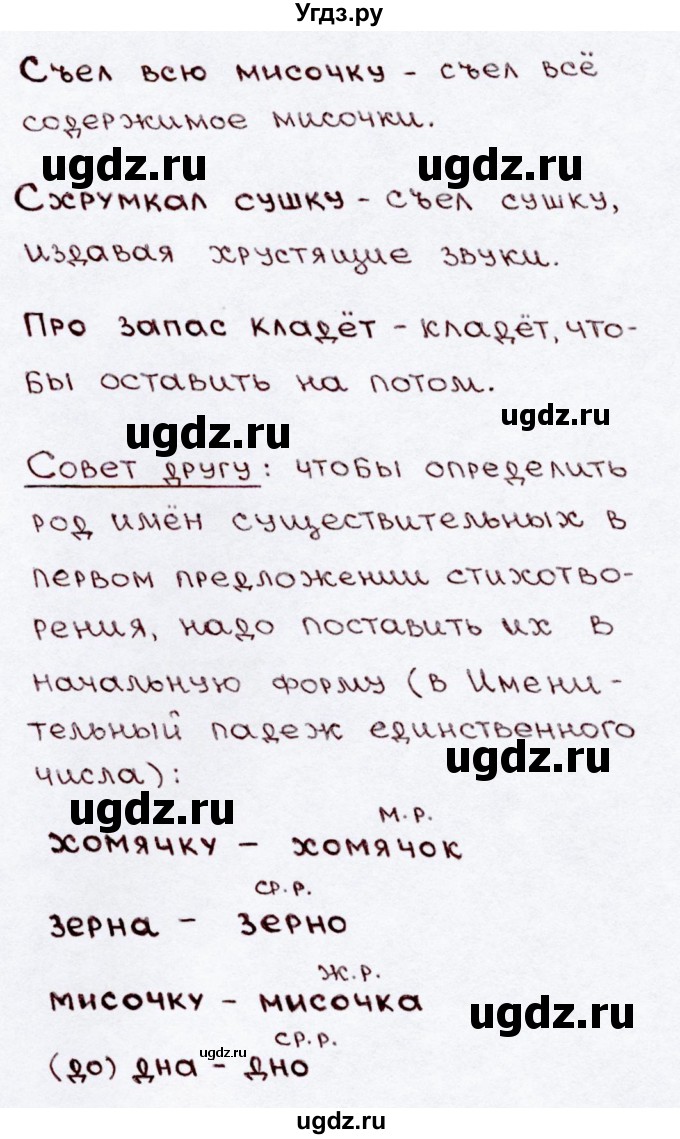 Угдз.ру
Съел всю мисочку - съел всё
содержимое мисочки.
ugdz.ru ugdz.ru
Схрумкал сушку - съел сушку,
издавая хрустящие звуки.
Про запас кладёт - кладёт, что-
бы оставить на потом.
ugdz.ru ugdz.ru
Совет другу: чтобы определить
род имён существительных в
первом предложении стихотво-
рения, надо поставить их в
начальную форму (в Имени-
тельный падеж единственного
ugdz.ru
числа):
ugdz.ru
м.р.
хомячку - хомячок
ср.р.
зерна - зерно
ж.р.
мисочку - мисочка
ugdz.ru
ср.р.
ugdz.ru
(до) дна - дно
ugdz.ru